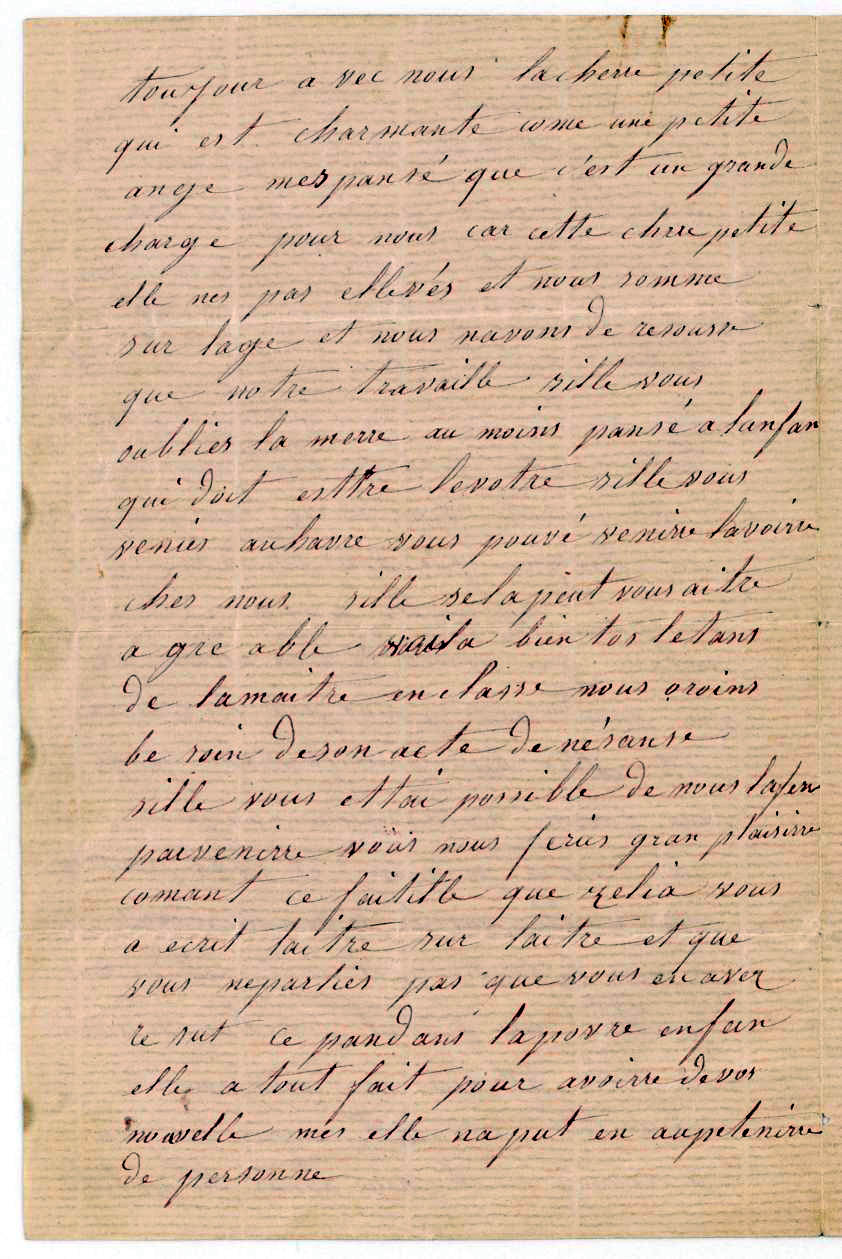 toujour a vec nous lacherre petite
qui est charmante come une petite
ange mes pansé que c'est un grande
charge pour nous car cette chere petite
elle nes pas ellevés et nous somme
sur lage et nous navons de resousse
que notre travaille sille vous
oublies la merre au moins pansé a lanfan
qui doit esttre levotre sille vous
veniés auhavre vous pouvé venirre lavoirre
ches nous sille sela peut vous aitre
a gre able voila bien tos letans
de lamaitre en classe nous oroins
be soin deson acte de nésanse
sille vous ettai possible de nous lafer
parvenirre vous nous feriés gran plaisirre
comant ce faitille que zelia vous
a ecrit laitre sur laitre et que
vous neparliés pas que vous en aver
re sut ce pandans lapovre enfan
elle a tout fait pour avoirre devos
nouvelle mes elle naput en aupetenirre
de personne